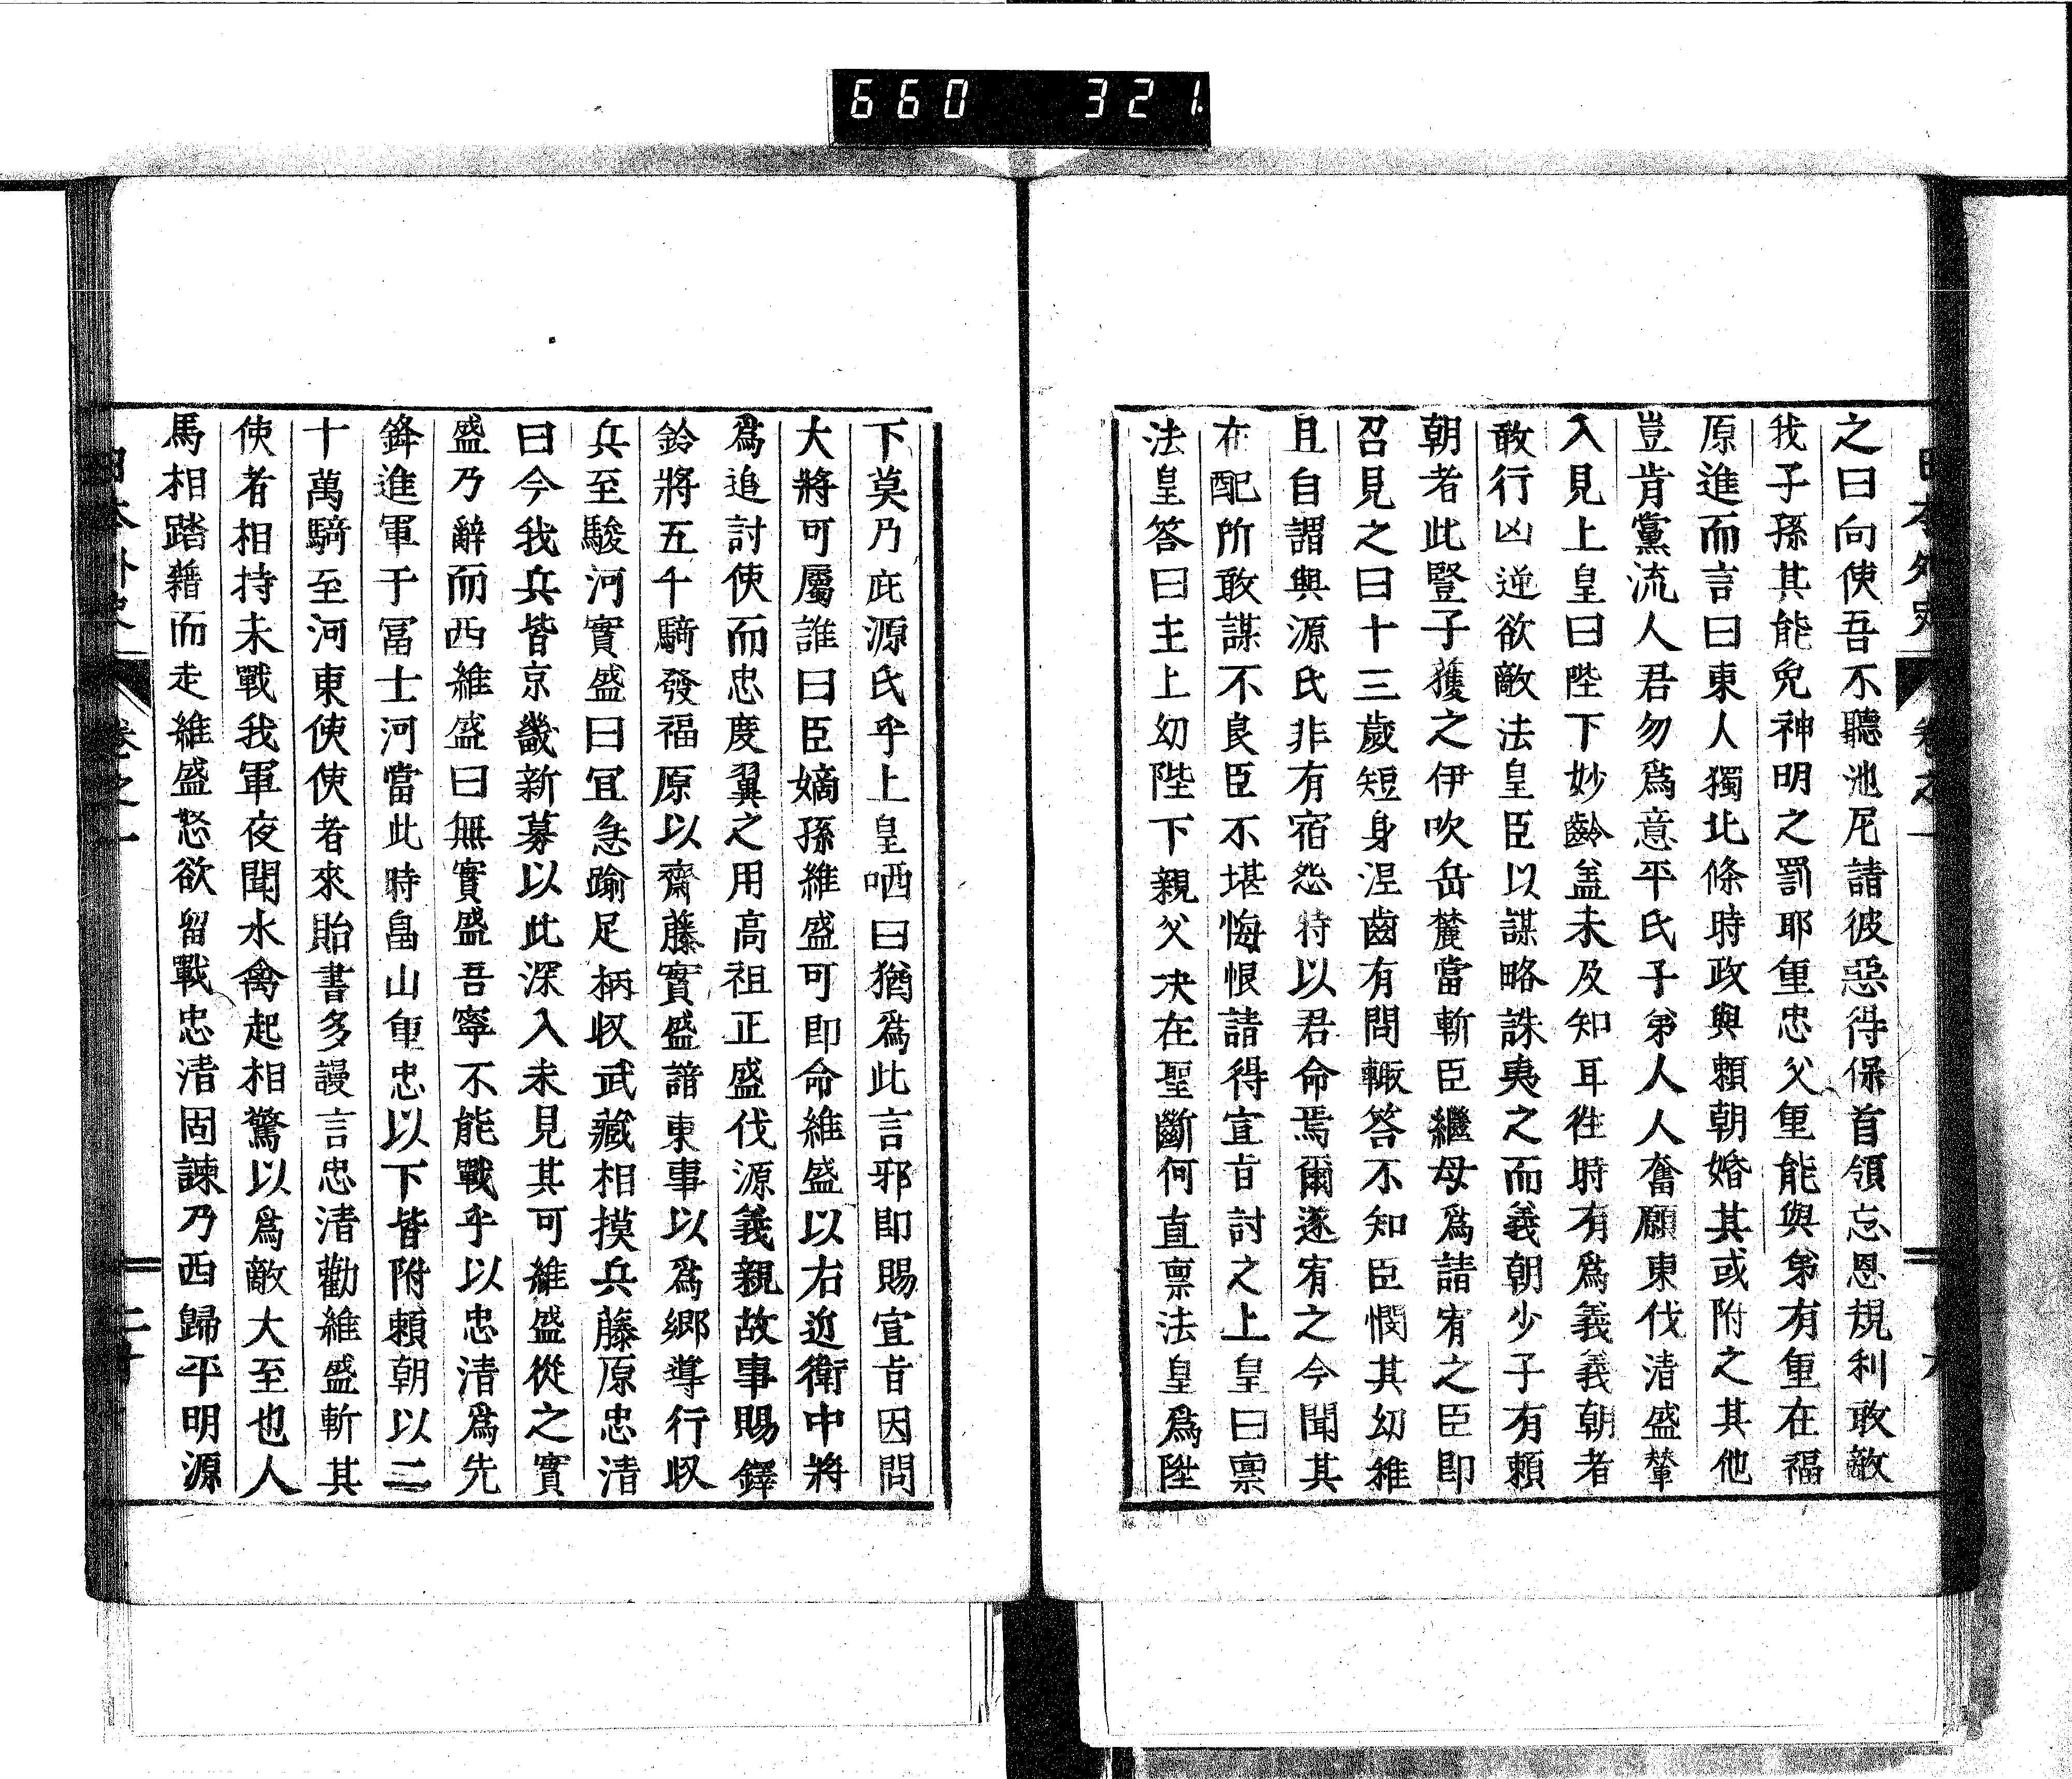 660 321
之曰向使吾不聽池尼諸彼惡得保首領忘恩規利敢敵
我子孫其能免神明之罰耶重忠父重能與弟有重在福
原進而言曰東人獨北條時政與賴朝婚其或附之其他
豈肯黨流人君勿爲意平氏子弟人人奮願東伐清盛輦
入見上皇曰陛下妙齡盖未及知耳徃時有爲義義朝者
敢行凶逆欲敵法皇臣以謀略誅夷之而義朝少子有賴
朝者此豎子獲之伊吹岳麓當斬臣繼母爲請宥之臣即
召見之曰十三歲短身涅齒有問輙答不知臣憫其幼稚
且自謂與源氏非有宿怨特以君命焉爾遂宥之今聞其
在配所敢謀不良臣不堪悔恨請得宣旨討之上皇曰禀
法皇答曰主上幼陛下親父决在聖斷何直禀法皇爲陛
下莫乃庇源氏乎上皇哂曰猶爲此言邪即賜宣旨因問
大將可屬誰曰臣嫡孫維盛可即命維盛以右近衛中將
爲追討使而忠度翼之用高祖正盛伐源義親故事賜鐸
鈴將五千騎發福原以齋藤實盛諳東事以爲鄉導行収
兵至駿河實盛曰宜急踰足柄収武藏相摸兵藤原忠清
曰今我兵皆京畿新募以此深入未見其可維盛從之實
盛乃辭而西維盛曰無實盛吾寧不能戰乎以忠清爲先
鋒進軍于冨士河當此時畠山重忠以下皆附賴朝以二
十萬騎至河東使使者來貽書多謾言忠清勸維盛斬其
使者相持未戰我軍夜聞水禽起相驚以爲敵大至也人
馬相踏藉而走維盛怒欲留戰忠清固諫乃西歸平明源
日本外史 卷之一